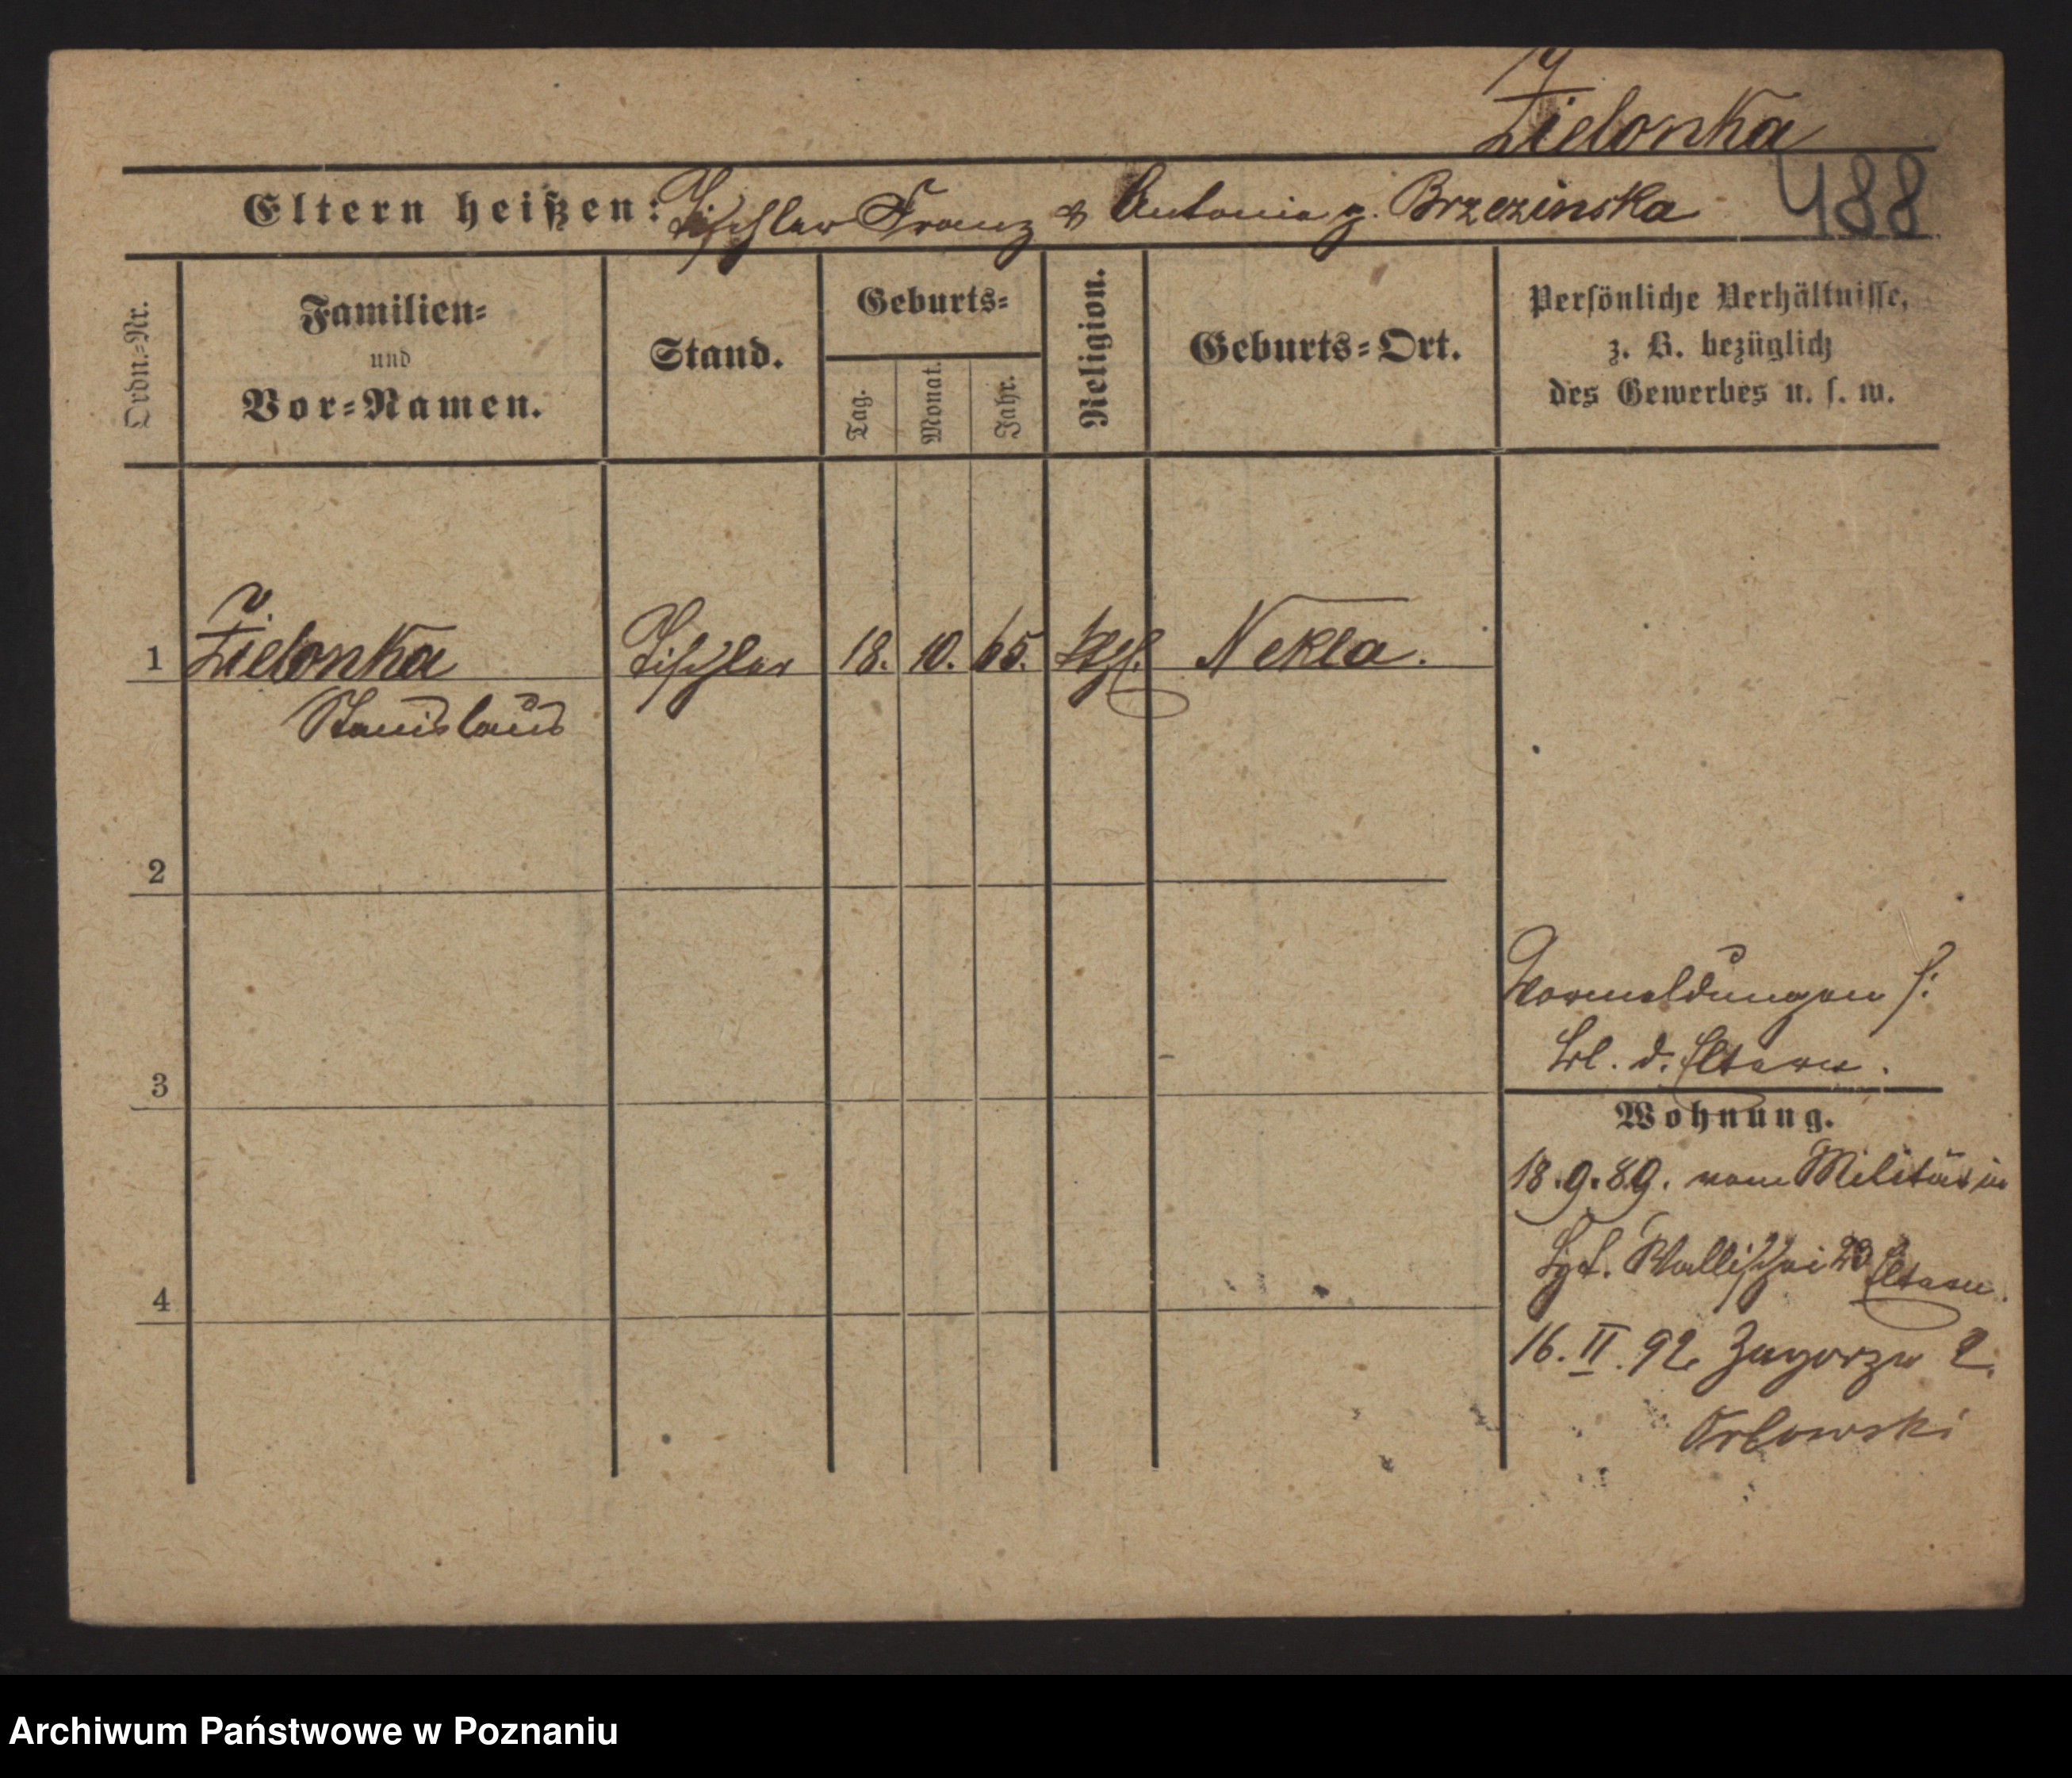 Zielonka
488
Eltern heißen: Tischler Franz & Antonia g. Brzezinska
Ordn.-Nr.
Familien-
und
Vor-Namen.
Stand.
Geburts-
Tag.
Monat.
Jahr.
Religion.
Geburts-Ort.
Persönliche Verhältnisse,
z. B. bezüglich
des Gewerbes u. s. w.
1 Zielonka Tischler 18. 10. 65. kth. Nekla.
Stanislaus
2
Vormeldungen s:
Bl. d. Eltern.
3
Wohnung.
18.9.89. vom Militär in
Wallischei 23 Eltern.
4
16. II. 92 Zagorze 2.
Orlowski
Archiwum Państwowe w Poznaniu